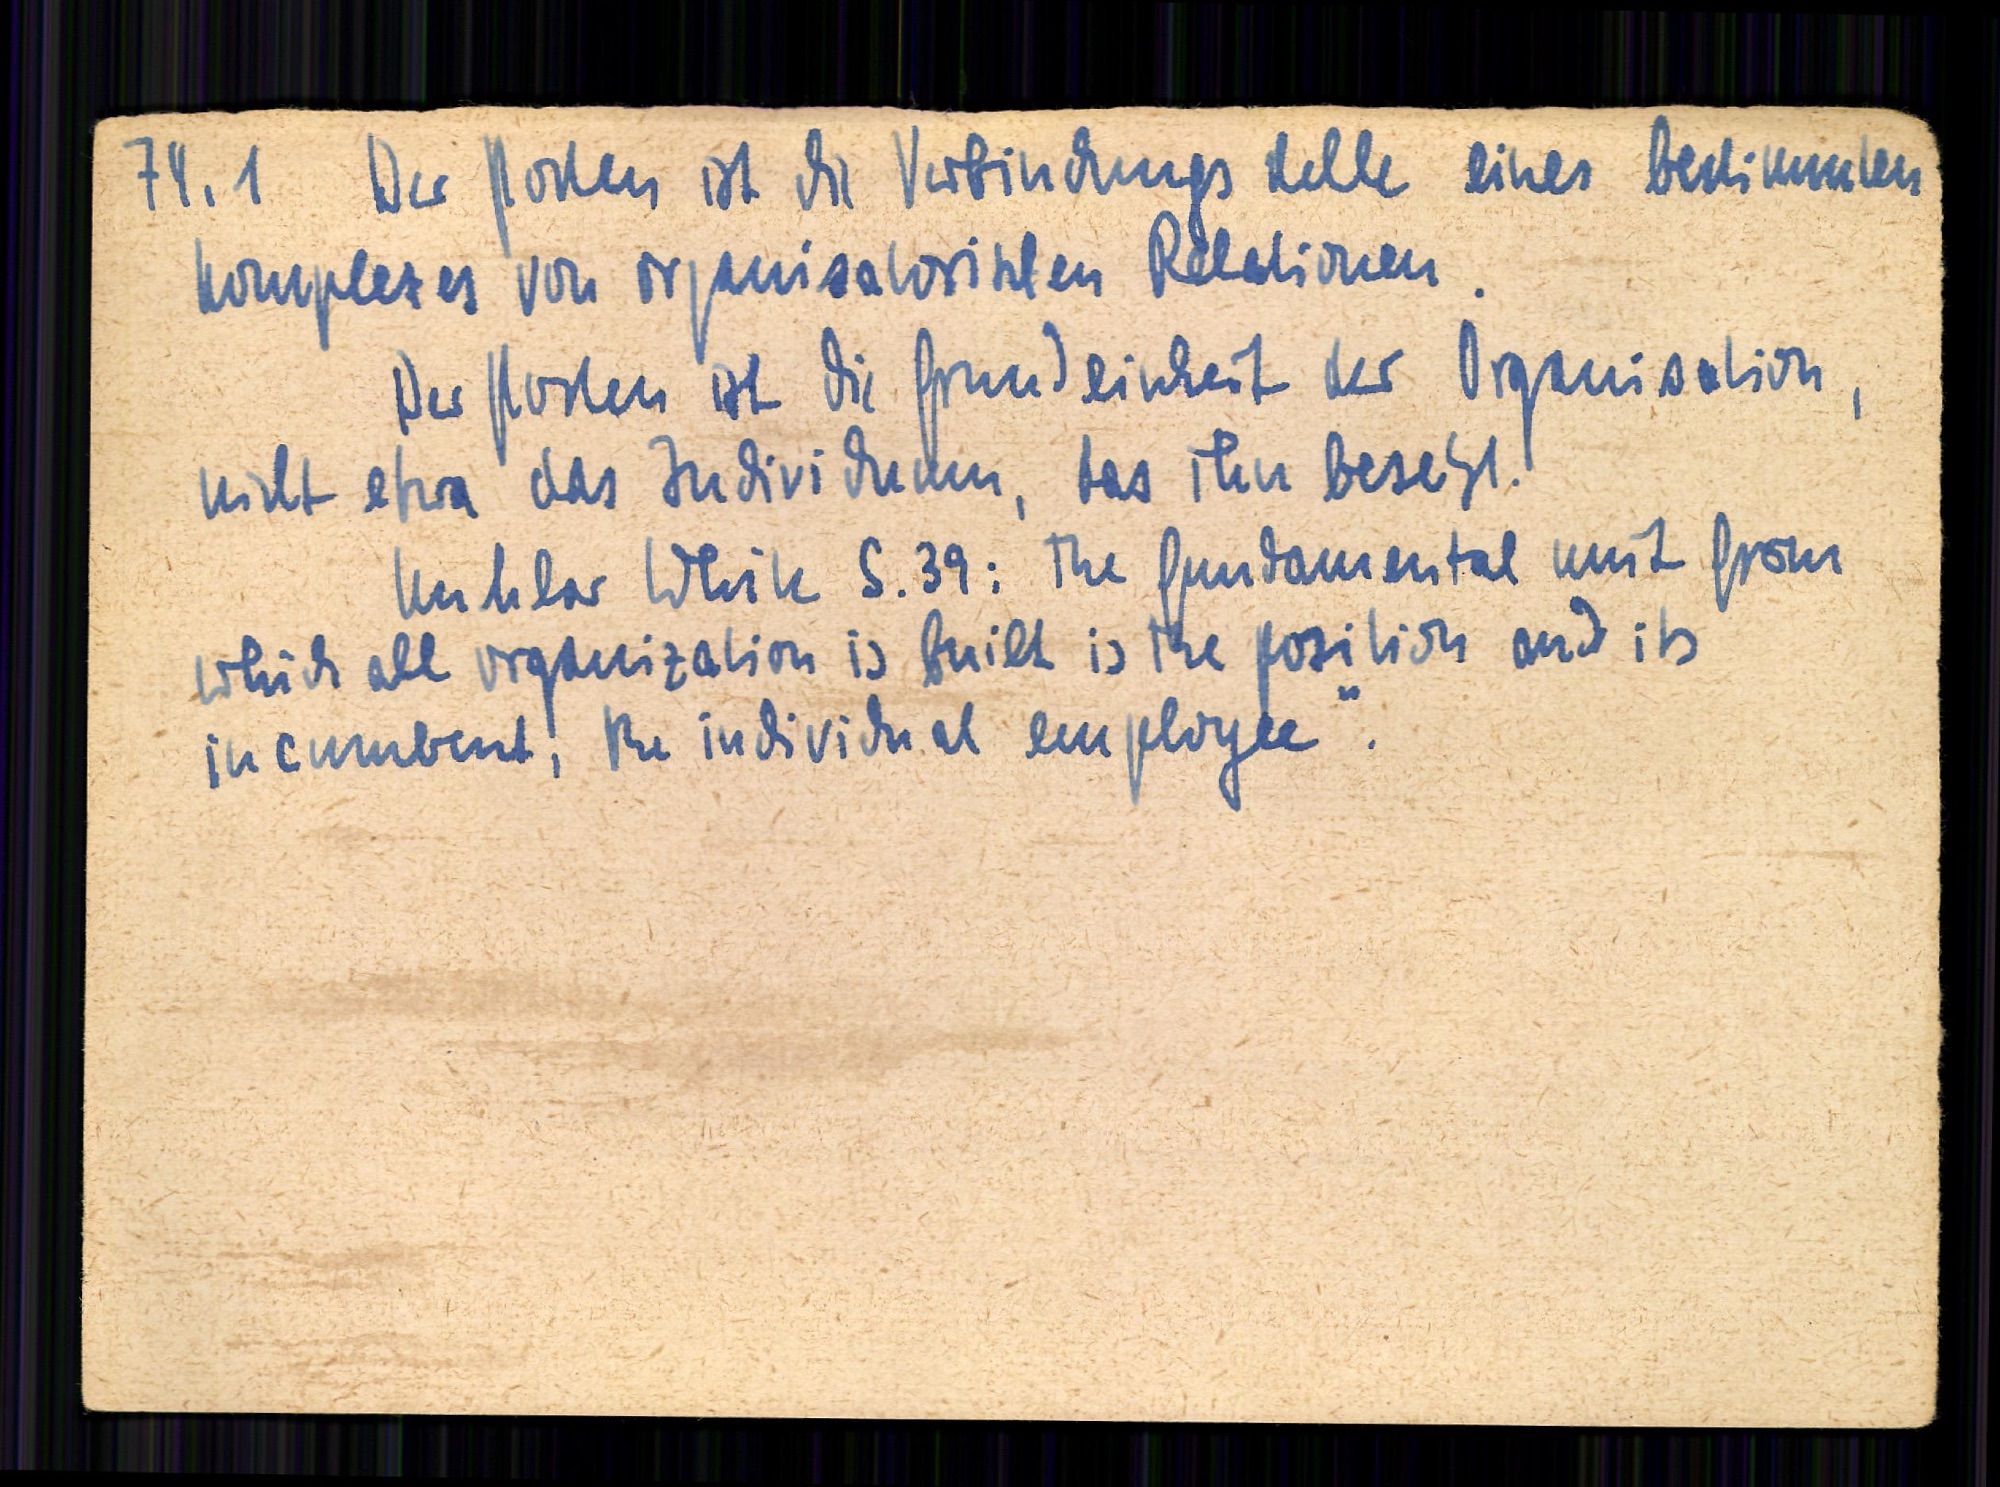 74,1 Der Posten ist die Verbindungsstelle eines bestimmten
Komplexes von organisatorischen Relationen.
Der Posten ist die Grundeinheit der Organisation,
nicht etwa das Individuum, das ihn besetzt.
Unklar White S. 39: The fundamental unit from
which all organization is built is the position and its
incumbent, the individual employee".